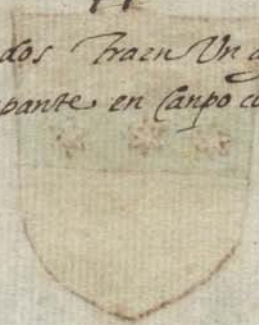 dos Traen Vn
pante en Canpo